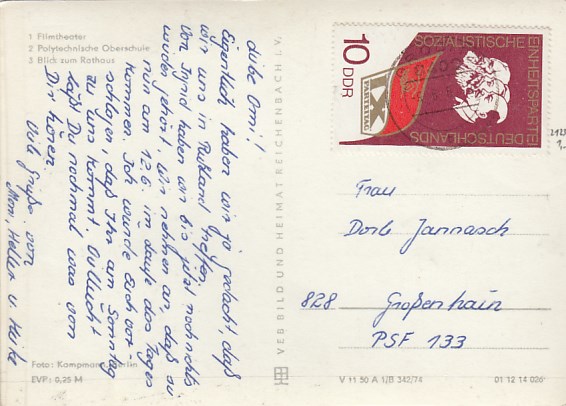 1 Filmtheater
2 Polytechnische Oberschule
3 Blick zum Rathaus
Liebe Omi!
Eigentlich haben wir ja gedacht, daß
wir uns in Rußland treffen.
Von Ingrid haben wir bis jetzt noch nichts
wieder gehört. Wir nehmen an, daß sie
nun am 12.6. im Laufe des Tages
kommen. Ich würde Euch vor-
schlagen, daß Ihr am Sonntag
zu uns kommt. Vielleicht
daß Du nochmal was von
Dir hören.
Viele Grüße von
Moni, Hella u. Heike
Foto: Kampmann, Berlin
EVP: 0,25 M
VEB BILD UND HEIMAT REICHENBACH I. V.
10
DDR
SOZIALISTISCHE
EINHEITSPARTEI
DEUTSCHLANDS
IX
PARTEITAG
Frau
Jannasch
828 Großenhain
PSF 133
V 11 50 A 1/B 342/74
01 12 14 026